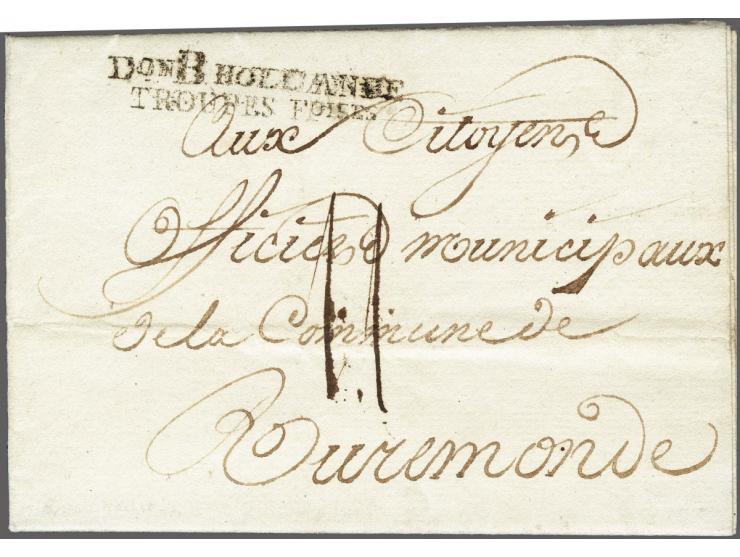 DONB HOLLANDE
TROUPES FOISES
Aux Citoyens
Officiers municipaux
de la Commune de
Ruremonde
11